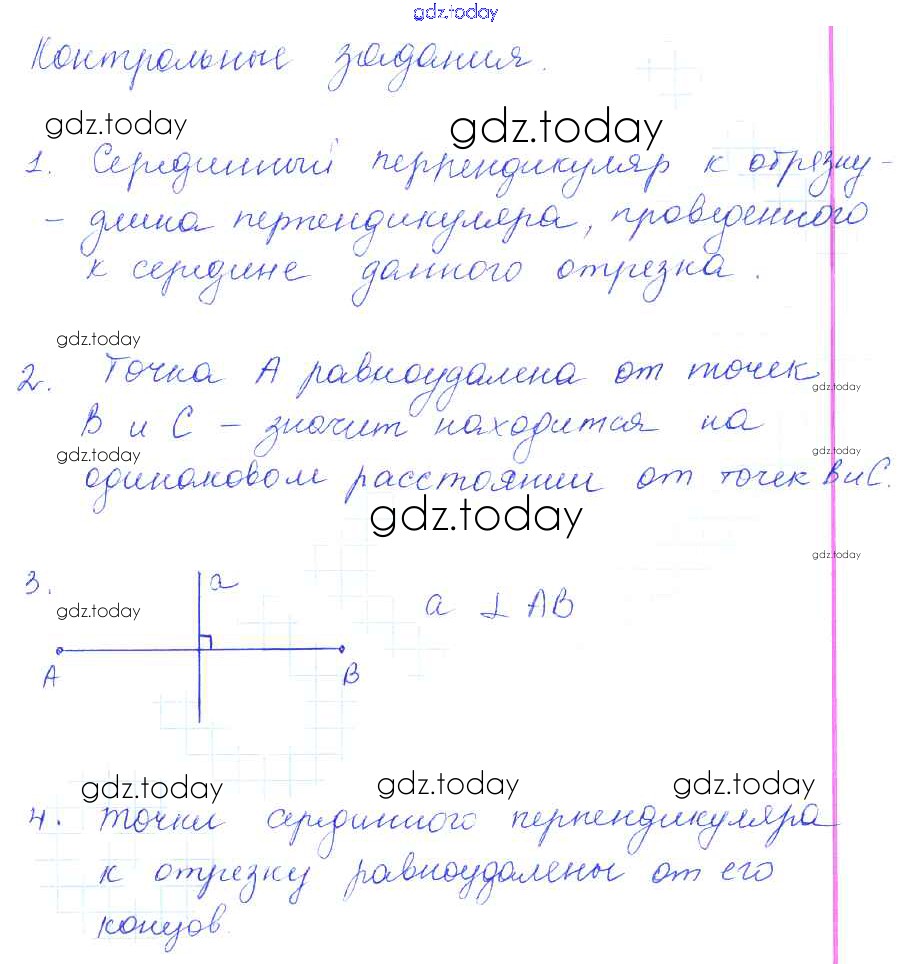 gdz.today
Контрольные задания.
gdz.today gdz.today
1. Серединный перрендикуляр к отрезку -
- длина перпендикуляра, проведенного
к середине данного отрезка.
gdz.today
2. Точка А равноудалена от точек
gdz.today
В и С - значит находится на
gdz.today gdz.today
одинаковом расстоянии от точек В и С.
gdz.today
gdz.today
3. a
gdz.today
a ⊥ AB
A B
gdz.today gdz.today gdz.today
4. Точки серединного перпендикуляра
к отрезку равноудалены от его
концов.